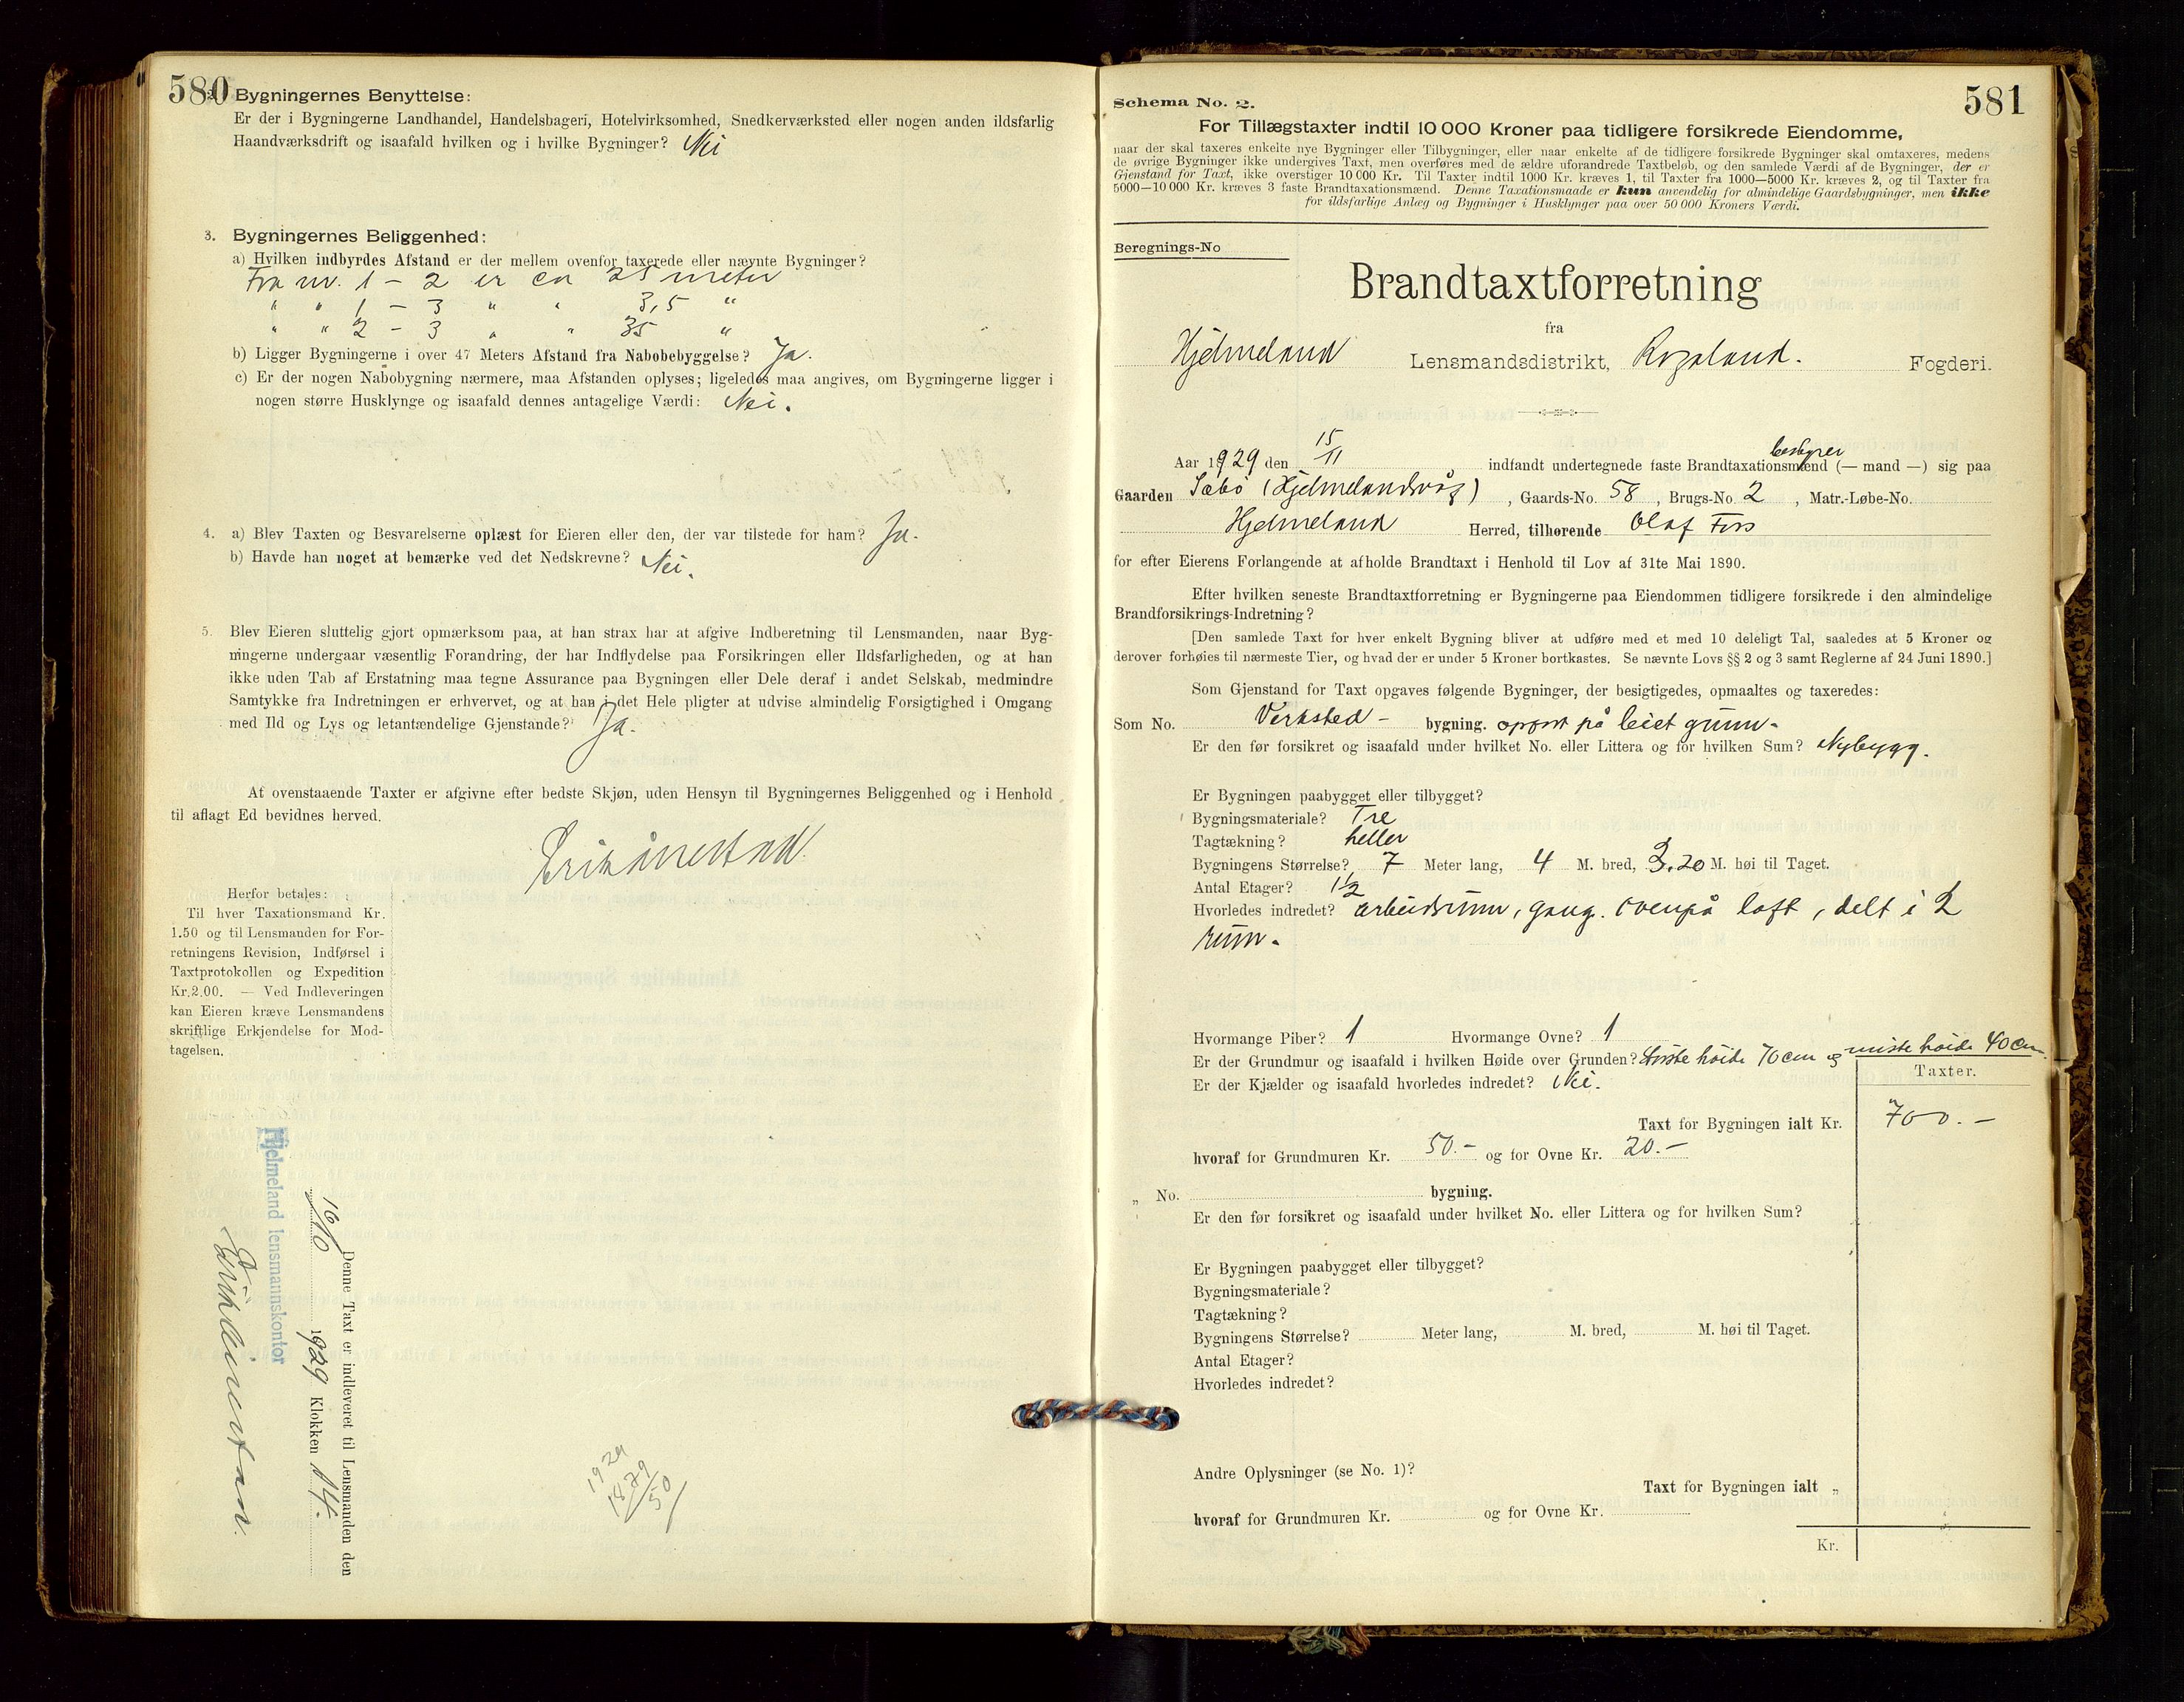 580
2. Bygningernes Benyttelse:
Er der i Bygningerne Landhandel, Handelsbageri, Hotelvirksomhed, Snedkerværksted eller nogen anden ildsfarlig
Haandværksdrift og isaafald hvilken og i hvilke Bygninger? Nei
3. Bygningernes Beliggenhed:
a) Hvilken indbyrdes Afstand er der mellem ovenfor taxerede eller nævnte Bygninger?
Fra nr. 1 - 2 er ca 25 meter
" " 1 - 3 " " 3,5 "
" " 2 - 3 " " 35 "
b) Ligger Bygningerne i over 47 Meters Afstand fra Nabobebyggelse? Ja.
c) Er der nogen Nabobygning nærmere, maa Afstanden oplyses; ligeledes maa angives, om Bygningerne ligger i
nogen større Husklynge og isaafald dennes antagelige Værdi: Nei.
4. a) Blev Taxten og Besvarelserne oplæst for Eieren eller den, der var tilstede for ham? Ja.
b) Havde han noget at bemærke ved det Nedskrevne? Nei.
5. Blev Eieren sluttelig gjort opmærksom paa, at han strax har at afgive Indberetning til Lensmanden, naar Byg-
ningerne undergaar væsentlig Forandring, der har Indflydelse paa Forsikringen eller Ildsfarligheden, og at han
ikke uden Tab af Erstatning maa tegne Assurance paa Bygningen eller Dele deraf i andet Selskab, medmindre
Samtykke fra Indretningen er erhvervet, og at han i det Hele pligter at udvise almindelig Forsigtighed i Omgang
med Ild og Lys og letantændelige Gjenstande? Ja.
At ovenstaaende Taxter er afgivne efter bedste Skjøn, uden Hensyn til Bygningernes Beliggenhed og i Henhold
til aflagt Ed bevidnes herved.
Herfor betales:
Til hver Taxationsmand Kr.
1.50 og til Lensmanden for For-
retningens Revision, Indførsel i
Taxtprotokollen og Expedition
Kr. 2.00. — Ved Indleveringen
kan Eieren kræve Lensmandens
skriftlige Erkjendelse for Mod-
tagelsen.
Denne Taxt er indleveret til Lensmanden den
16/10 1929 Klokken 14.
Hjelmeland lensmannskontor
1929
1879
50
581
Schema No. 2.
For Tillægstaxter indtil 10 000 Kroner paa tidligere forsikrede Eiendomme,
naar der skal taxeres enkelte nye Bygninger eller Tilbygninger, eller naar enkelte af de tidligere forsikrede Bygninger skal omtaxeres, medens
de øvrige Bygninger ikke undergives Taxt, men overføres med de ældre uforandrede Taxtbeløb, og den samlede Værdi af de Bygninger, der er
Gjenstand for Taxt, ikke overstiger 10 000 Kr. Til Taxter indtil 1000 Kr. kræves 1, til Taxter fra 1000—5000 Kr. kræves 2, og til Taxter fra
5000—10 000 Kr. kræves 3 faste Brandtaxationsmænd. Denne Taxationsmaade er kun anvendelig for almindelige Gaardsbygninger, men ikke
for ildsfarlige Anlæg og Bygninger i Husklynger paa over 50 000 Kroners Værdi.
Beregnings-No
Brandtaxtforretning
fra
Hjelmeland Lensmandsdistrikt, Rogaland. Fogderi.
Aar 1929 den 15/11 indfandt undertegnede faste Brandtaxationsmænd (— mand —) sig paa
bestyrer
Gaarden Sæbø (Hjelmelandsvåg), Gaards-No. 58, Brugs-No. 2, Matr.-Løbe-No.
Hjelmeland Herred, tilhørende Olaf Foss
for efter Eierens Forlangende at afholde Brandtaxt i Henhold til Lov af 31te Mai 1890.
Efter hvilken seneste Brandtaxtforretning er Bygningerne paa Eiendommen tidligere forsikrede i den almindelige
Brandforsikrings-Indretning?
[Den samlede Taxt for hver enkelt Bygning bliver at udføre med et med 10 deleligt Tal, saaledes at 5 Kroner og
derover forhøies til nærmeste Tier, og hvad der er under 5 Kroner bortkastes. Se nævnte Lovs §§ 2 og 3 samt Reglerne af 24 Juni 1890.]
Som Gjenstand for Taxt opgaves følgende Bygninger, der besigtigedes, opmaaltes og taxeredes:
Som No. Verksted - bygning. opført på leiet grunn.
Er den før forsikret og isaafald under hvilket No. eller Littera og for hvilken Sum? Nybygg.
Er Bygningen paabygget eller tilbygget?
Bygningsmateriale? Tre
Tagtækning? heller
Bygningens Størrelse? 7 Meter lang, 4 M. bred, 3.20 M. høi til Taget.
Antal Etager? 1½
Hvorledes indredet? arbeidsrum, gang. Ovenpå loft, delt i 2
rum.
Hvormange Piber? 1 Hvormange Ovne? 1
Er der Grundmur og isaafald i hvilken Høide over Grunden? Største høide 70 cm og minste høide 40 cm.
Er der Kjælder og isaafald hvorledes indredet? Nei.
Taxter.
Taxt for Bygningen ialt Kr. 700.-
hvoraf for Grundmuren Kr. 50.- og for Ovne Kr. 20.-
„ No. bygning.
Er den før forsikret og isaafald under hvilket No. eller Littera og for hvilken Sum?
Er Bygningen paabygget eller tilbygget?
Bygningsmateriale?
Tagtækning?
Bygningens Størrelse? Meter lang, M. bred, M. høi til Taget.
Antal Etager?
Hvorledes indredet?
Andre Oplysninger (se No. 1)?
Taxt for Bygningen ialt „
hvoraf for Grundmuren Kr. og for Ovne Kr.
Kr.